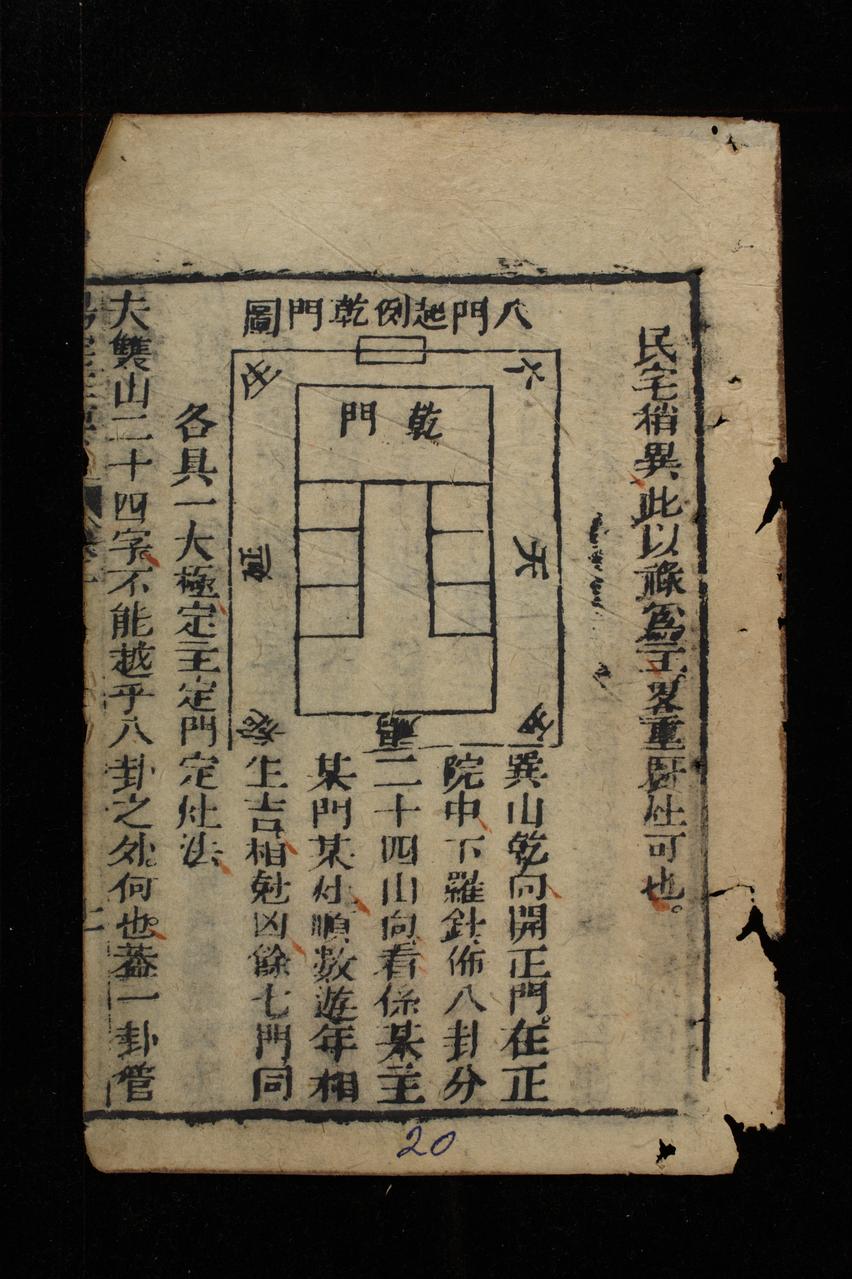 民宅稍異此以祿爲主畧重厨灶可也。
八門起例乾門圖
乾門
六
天
五
禍
絶
延
生
巽山乾向開正門。在正
院中下羅針佈八卦分
二十四山向看係某主
某門某灶順數遊年相
生吉相尅凶餘七門同
各具一大極定主定門定灶法
夫雙山二十四字不能越乎八卦之外。何也。蓋一卦管
20